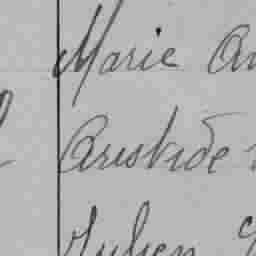 Marie
Aristide
Julien